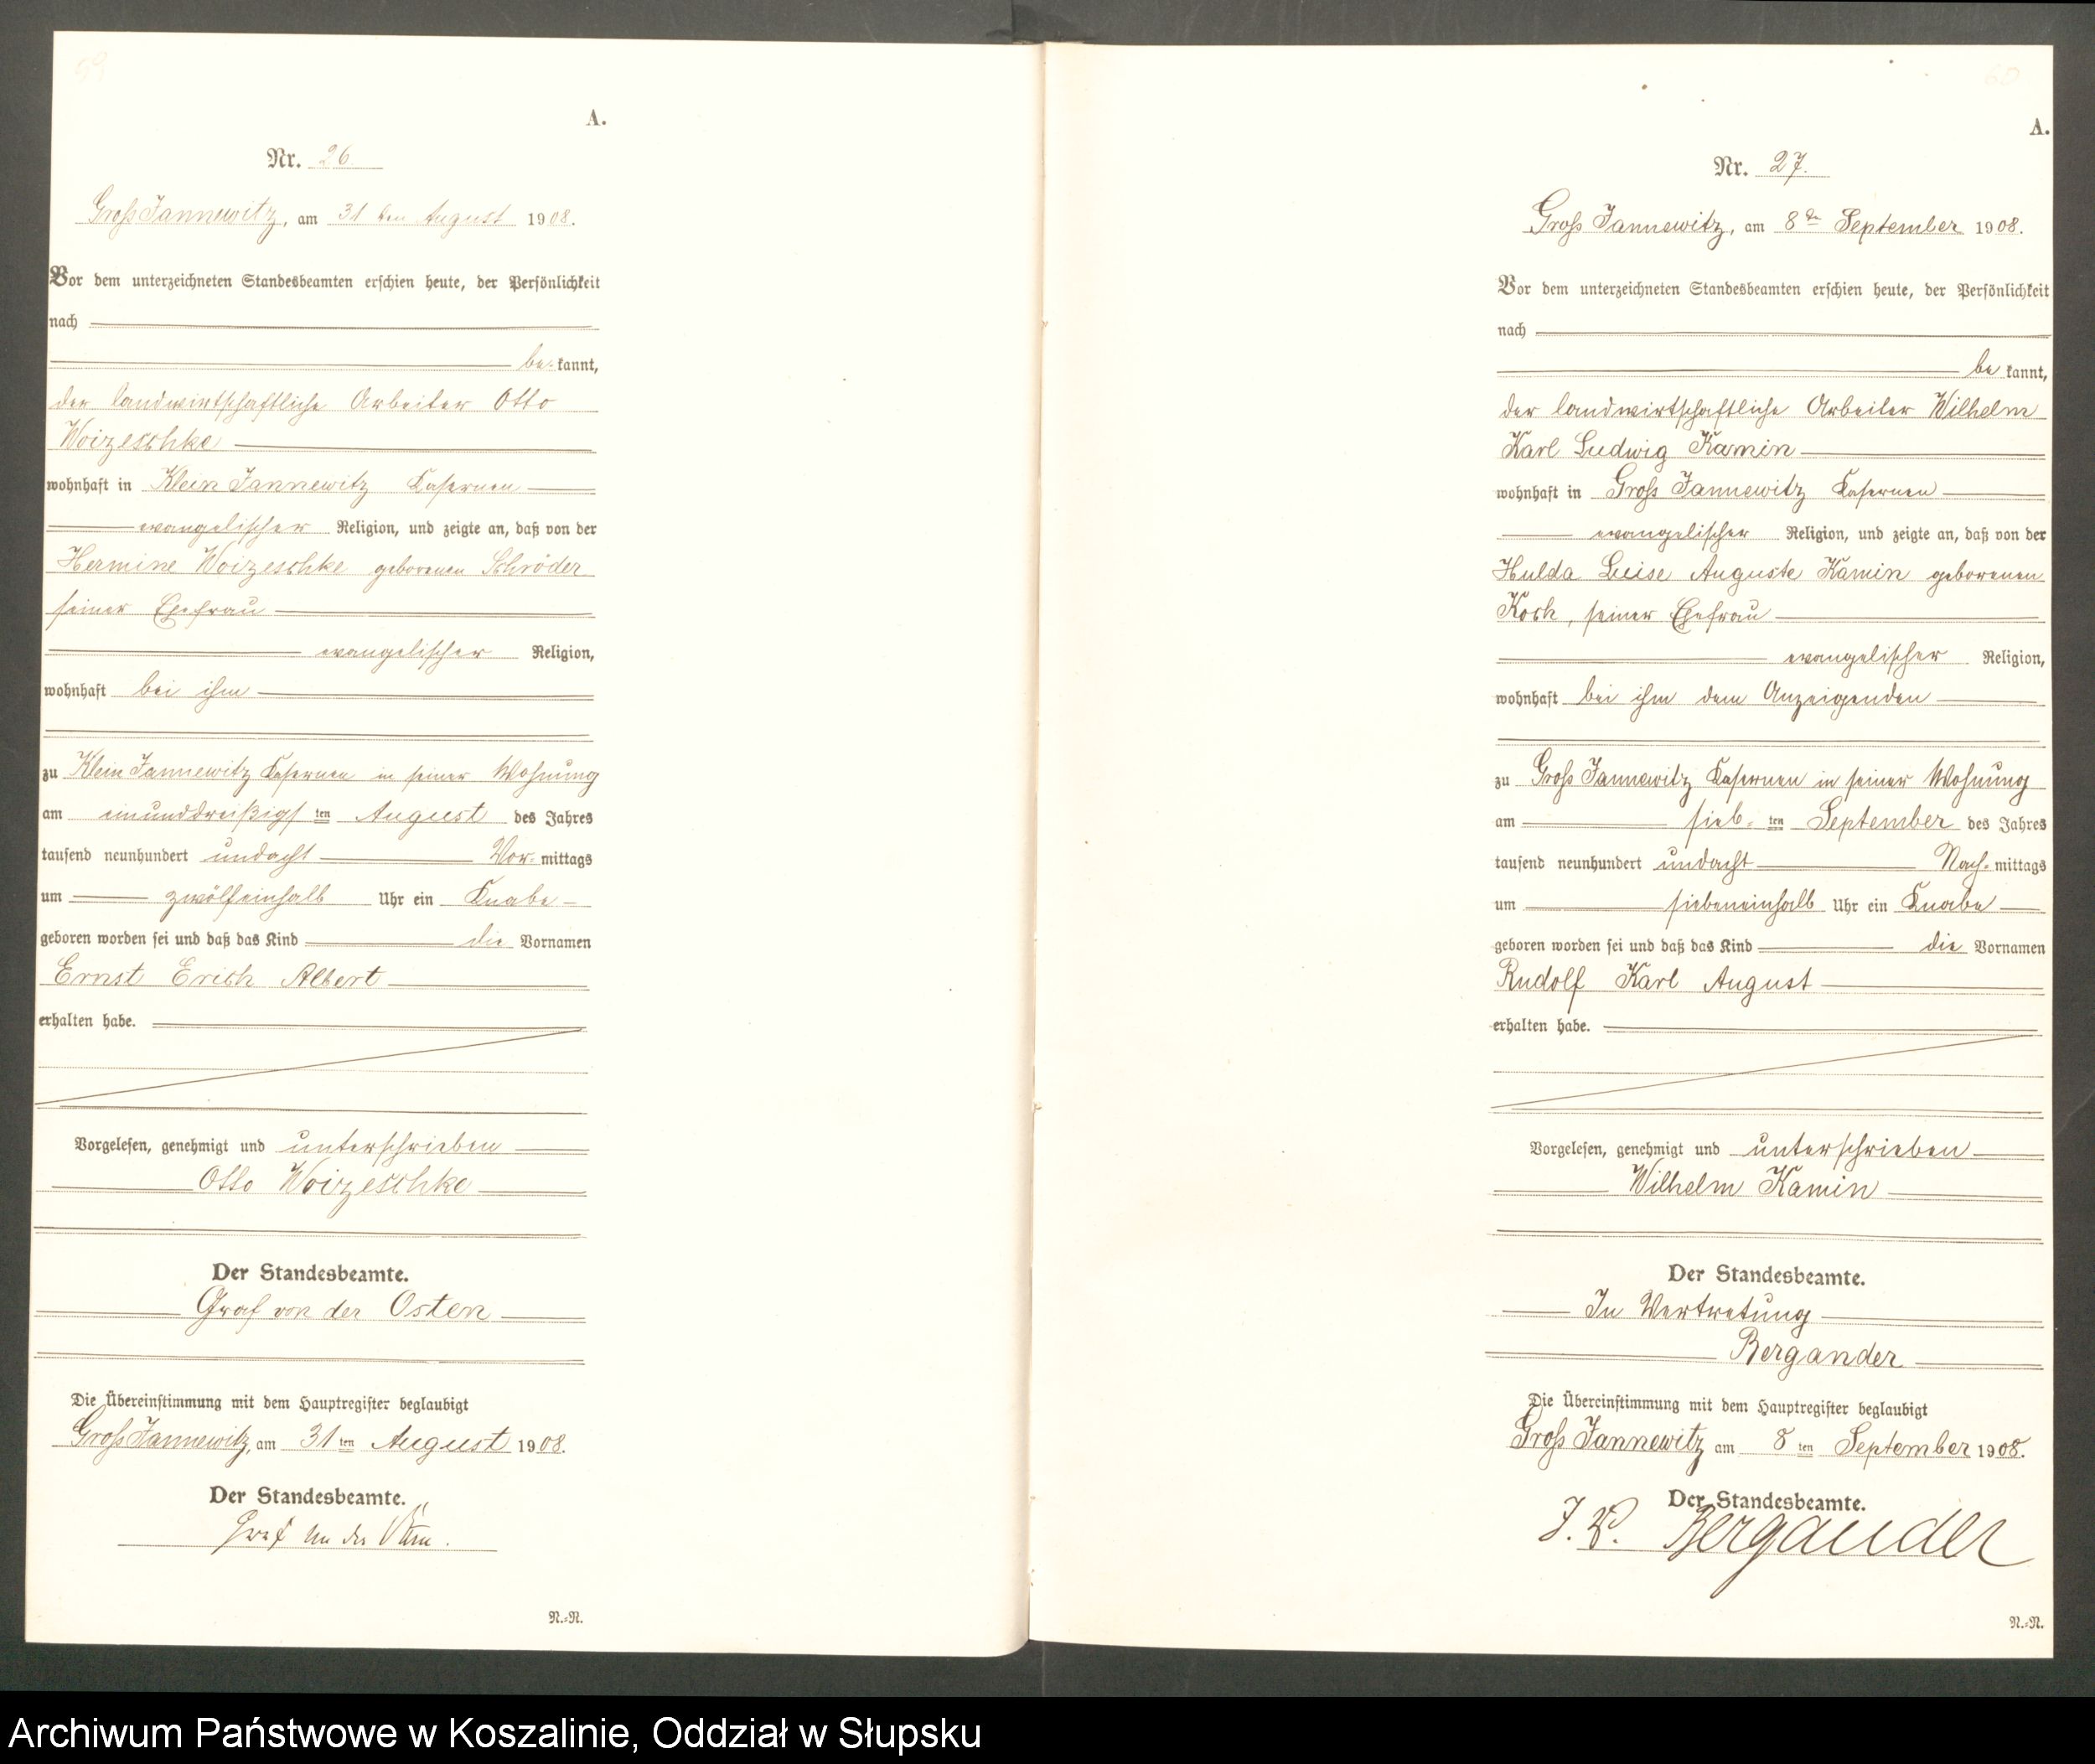 59
A.
Nr. 26.
Groß Jannewitz, am 31 ten August 1908.
Vor dem unterzeichneten Standesbeamten erschien heute, der Persönlichkeit
nach
be- kannt,
der landwirtschaftliche Arbeiter Otto
Woizeschke
wohnhaft in Klein Jannewitz Kasernen
evangelischer Religion, und zeigte an, daß von der
Hermine Woizeschke geborenen Schröder
seiner Ehefrau
evangelischer Religion,
wohnhaft bei ihm
zu Klein Jannewitz Kasernen in seiner Wohnung
am einunddreißigs ten August des Jahres
tausend neunhundert undacht Vor- mittags
um zwölfeinhalb Uhr ein Knabe
geboren worden sei und daß das Kind die Vornamen
Ernst Erich Albert
erhalten habe.
Vorgelesen, genehmigt und unterschrieben
Otto Woizeschke
Der Standesbeamte.
Graf von der Osten
Die Übereinstimmung mit dem Hauptregister beglaubigt
Groß Jannewitz, am 31 ten August 1908.
Der Standesbeamte.
Graf von der Osten.
N.-N.
60
A.
Nr. 27.
Groß Jannewitz, am 8 ten September 1908.
Vor dem unterzeichneten Standesbeamten erschien heute, der Persönlichkeit
nach
be kannt,
der landwirtschaftliche Arbeiter Wilhelm
Karl Ludwig Kamin
wohnhaft in Groß Jannewitz Kasernen
evangelischer Religion, und zeigte an, daß von der
Hulda Luise Auguste Kamin geborenen
Koch, seiner Ehefrau
evangelischer Religion,
wohnhaft bei ihm dem Anzeigenden
zu Groß Jannewitz Kasernen in seiner Wohnung
am sieb- ten September des Jahres
tausend neunhundert undacht Nach- mittags
um siebeneinhalb Uhr ein Knabe
geboren worden sei und daß das Kind die Vornamen
Rudolf Karl August
erhalten habe.
Vorgelesen, genehmigt und unterschrieben
Wilhelm Kamin
Der Standesbeamte.
In Vertretung
Bergander
Die Übereinstimmung mit dem Hauptregister beglaubigt
Groß Jannewitz am 8 ten September 1908.
Der Standesbeamte.
J. V. Bergander
N.-N.
Archiwum Państwowe w Koszalinie, Oddział w Słupsku